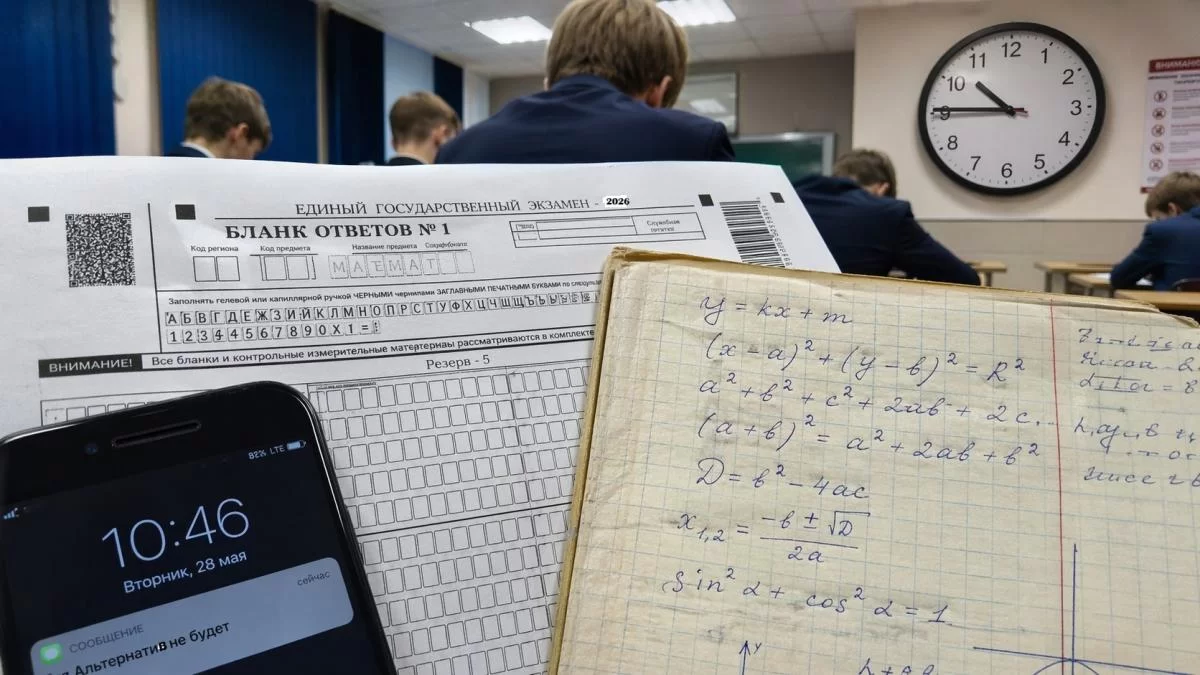 12
1
2
3
4
5
6
7
8
9
10
11
ЕДИНЫЙ ГОСУДАРСТВЕННЫЙ ЭКЗАМЕН - 2026
БЛАНК ОТВЕТОВ № 1
Служебная
Код региона Код предмета Название предмета
МАТЕМАТ
Заполнять гелевой или капиллярной ручкой ЧЕРНЫМИ чернилами ЗАГЛАВНЫМИ ПЕЧАТНЫМИ БУКВАМИ по
АБВГДЕЖЗИЙКЛМНОПРСТУФХЦЧШЩЪЫЬ
12344567890X1=
ВНИМАНИЕ! Все бланки и контрольные измерительные рассматриваются в комплекте
Резерв - 5
82% LTE
10:46
Вторник, 28 мая
сейчас
СООБЩЕНИЕ
Альтернатив не будет
y = kx + m
(x - a)² + (y - b)² = R²
a² + b² + c² + 2ab + 2c..
(a + b)² = a² + 2ab + b²
D = b² - 4ac
x1,2 = -b ± √D / 2a
Sin² α + cos² α = 1
y